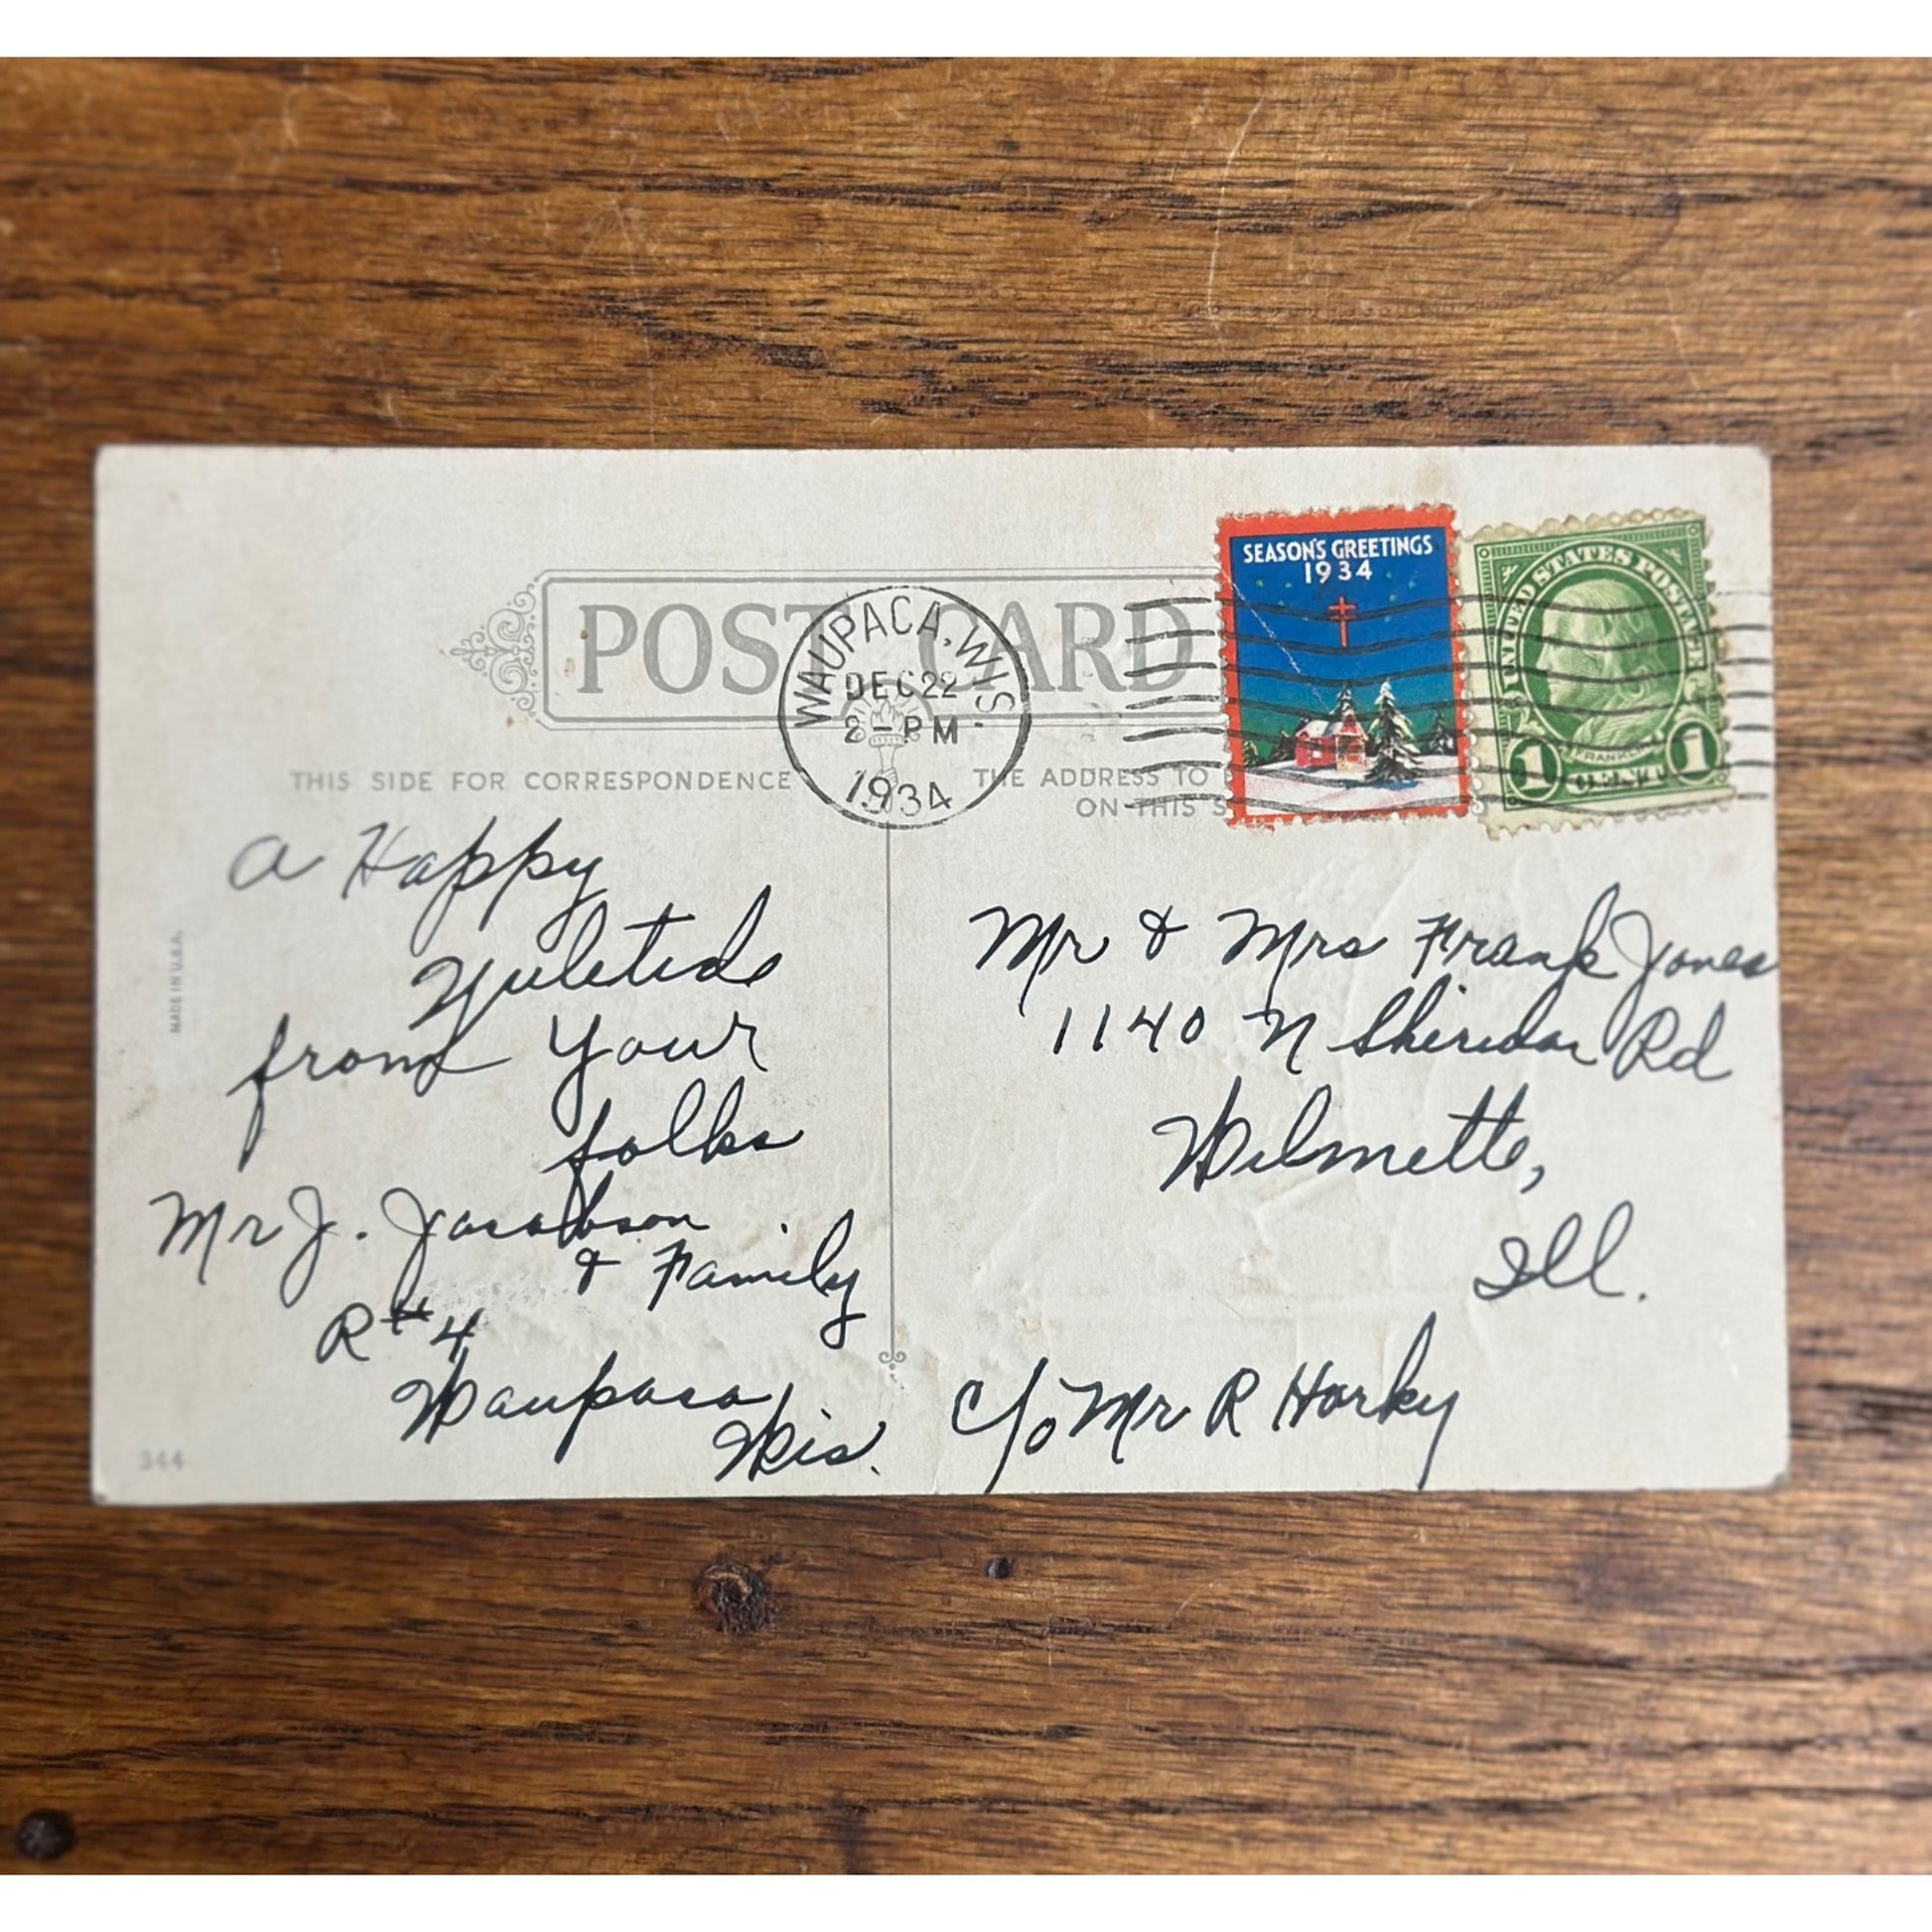 POST CARD
WAUPACA, WIS.
DEC 22
2 - PM
1934
SEASON'S GREETINGS
1934
UNITED STATES POSTAGE
FRANKLIN
1 CENT 1
THIS SIDE FOR CORRESPONDENCE
THE ADDRESS TO
ON THIS S
A Happy
Yuletide
from your
folks
Mr J. Jacobson
& Family
R#4
Waupaca
Wis.
MADE IN U.S.A.
344
Mr & Mrs Frank Jones
1140 N Sheridan Rd
Wilmette,
Ill.
c/o Mr R Horky